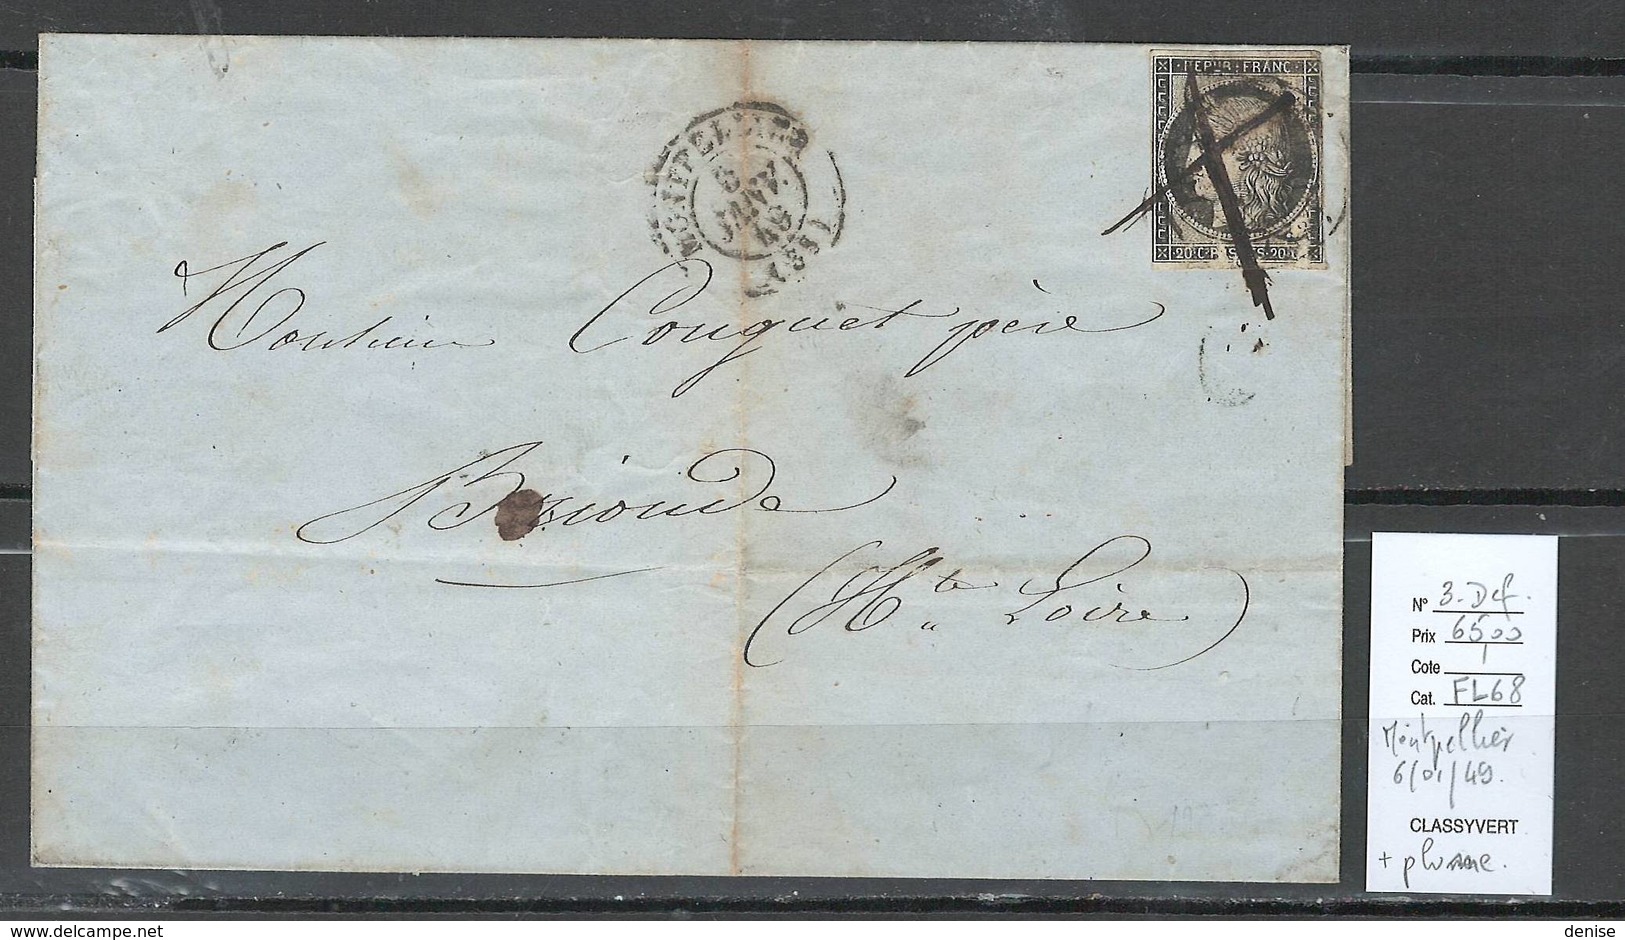 REPUB. FRANC.
20.C. POSTES. 20.C.
MONTPELLIER
6
JANV.
49
(33)
Monsieur Couguet père
Brioude
(Hte Loire)
N° 3. Def.
Prix 6500
Cote /
Cat. FL68
Montpellier
6/01/49.
CLASSYVERT
+ plume.
denise